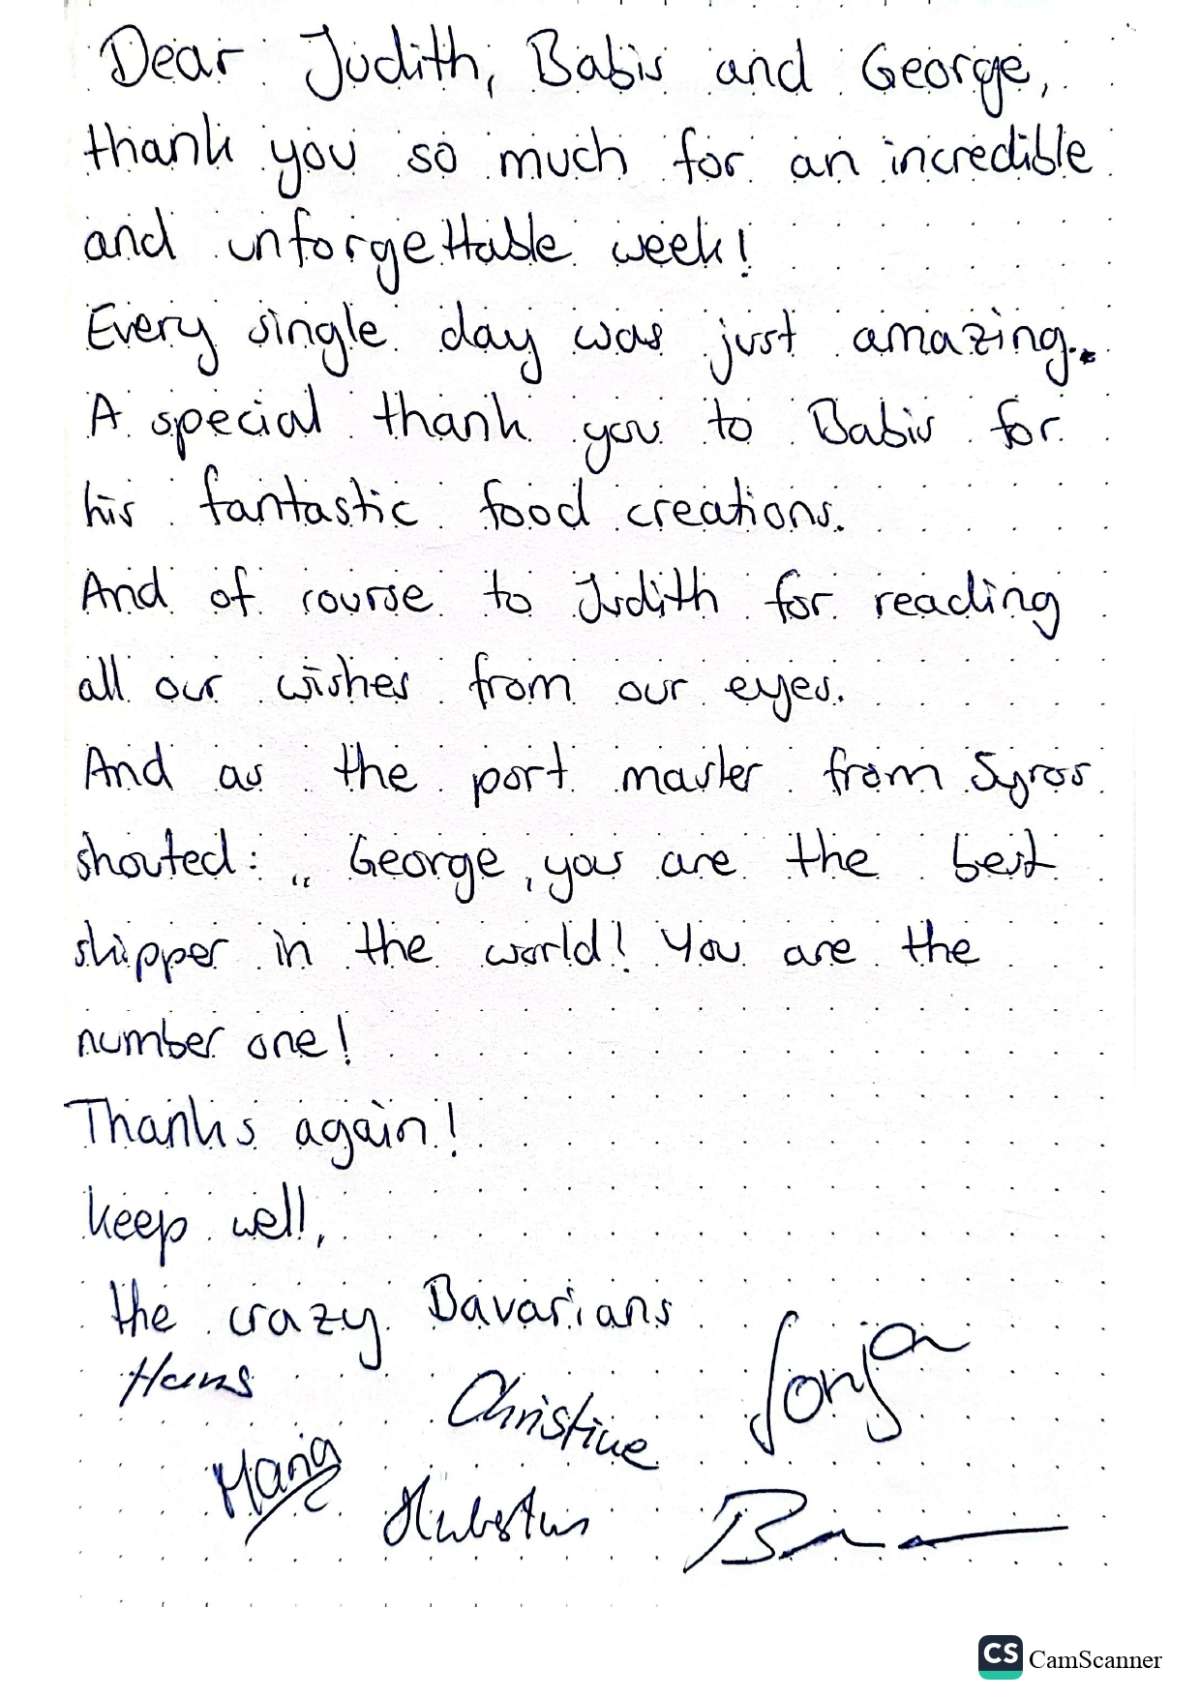 Dear Judith, Babis and George,
thank you so much for an incredible
and unforgettable week!
Every single day was just amazing.
A special thank you to Babis for
his fantastic food creations.
And of course to Judith for reading
all our wishes from our eyes.
And as the port master from Syros
shouted: „George, you are the best
skipper in the world! You are the
number one!
Thanks again!
Keep well,
the crazy Bavarians
Hans Christine Sonja
Maria Hubertus
CS CamScanner